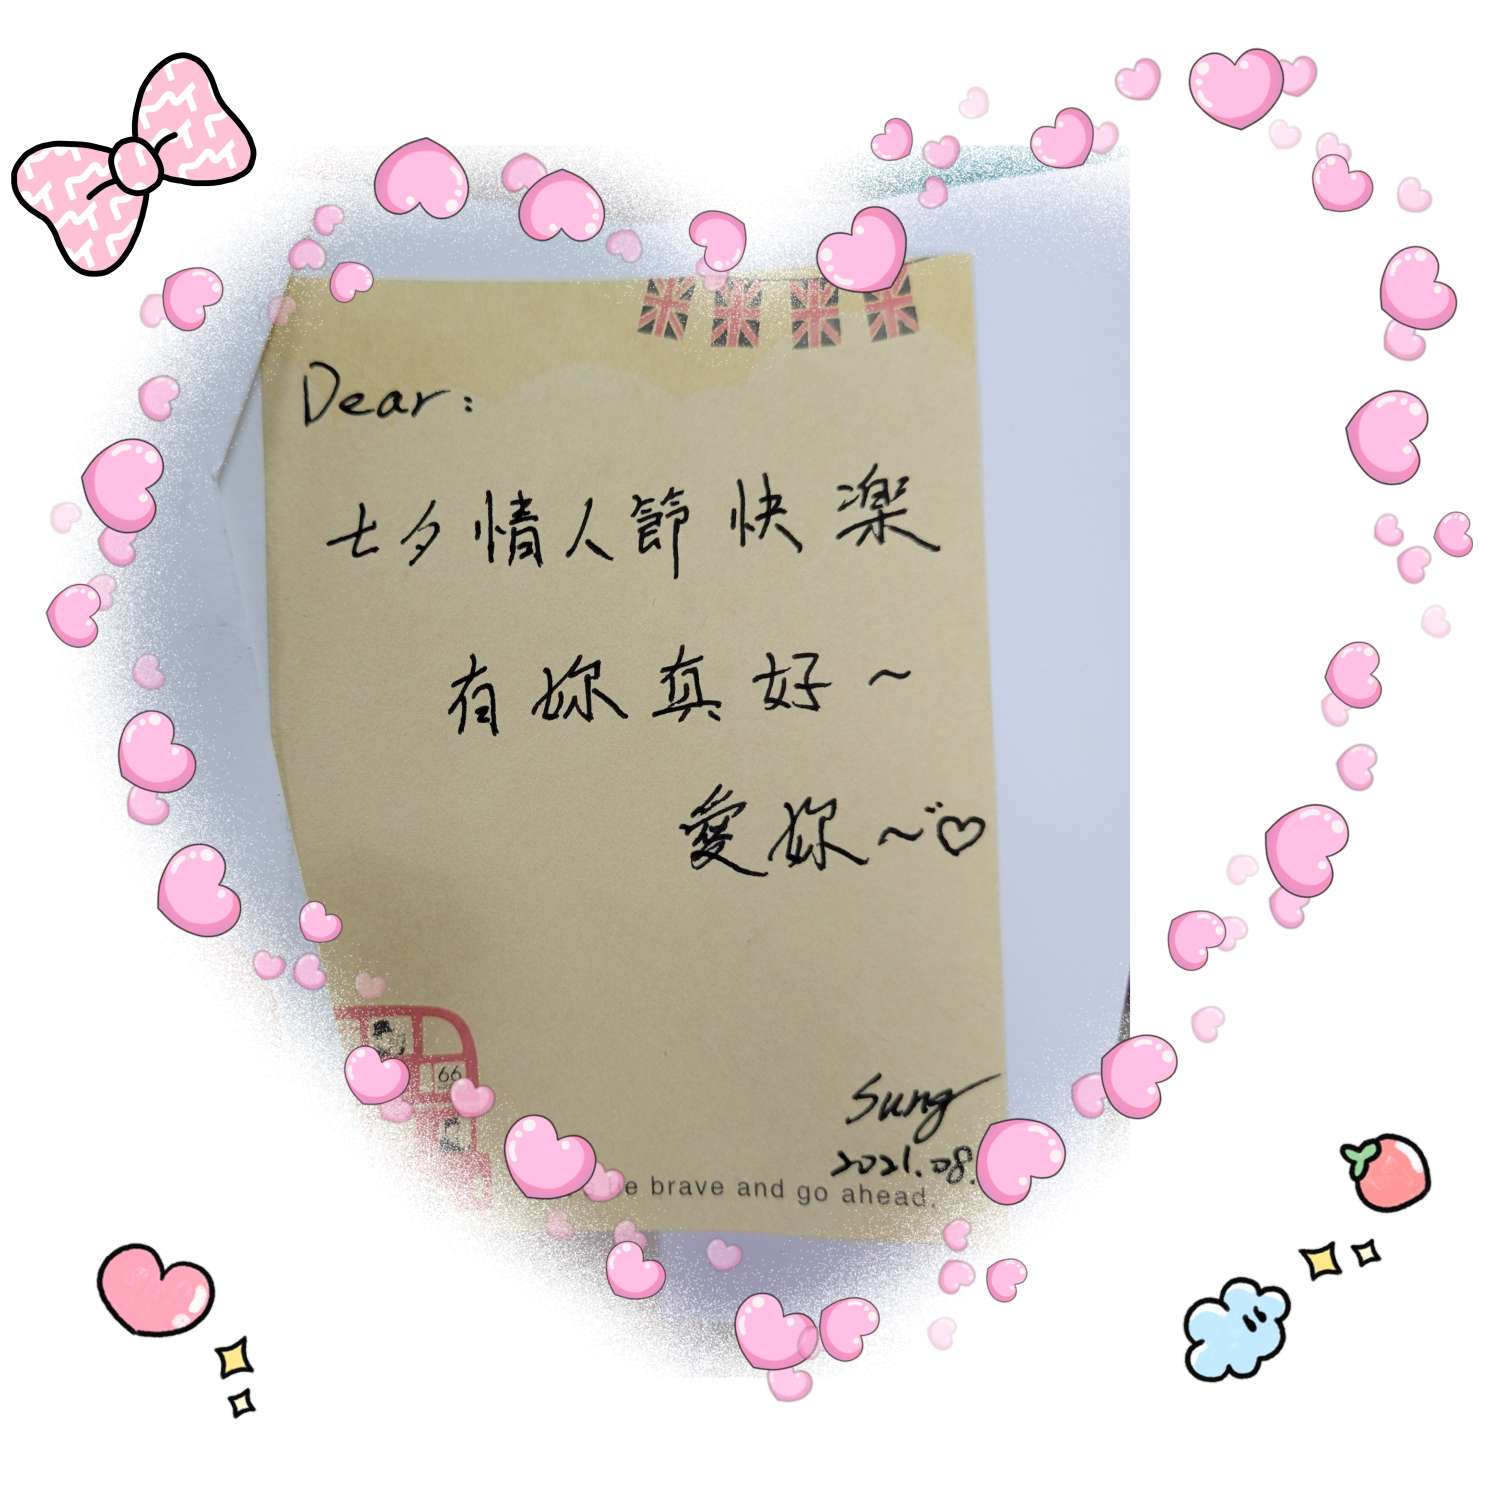 Dear:
七夕情人節快楽
有妳真好~
愛妳~♡
66
Sung
2021.08.
be brave and go ahead.